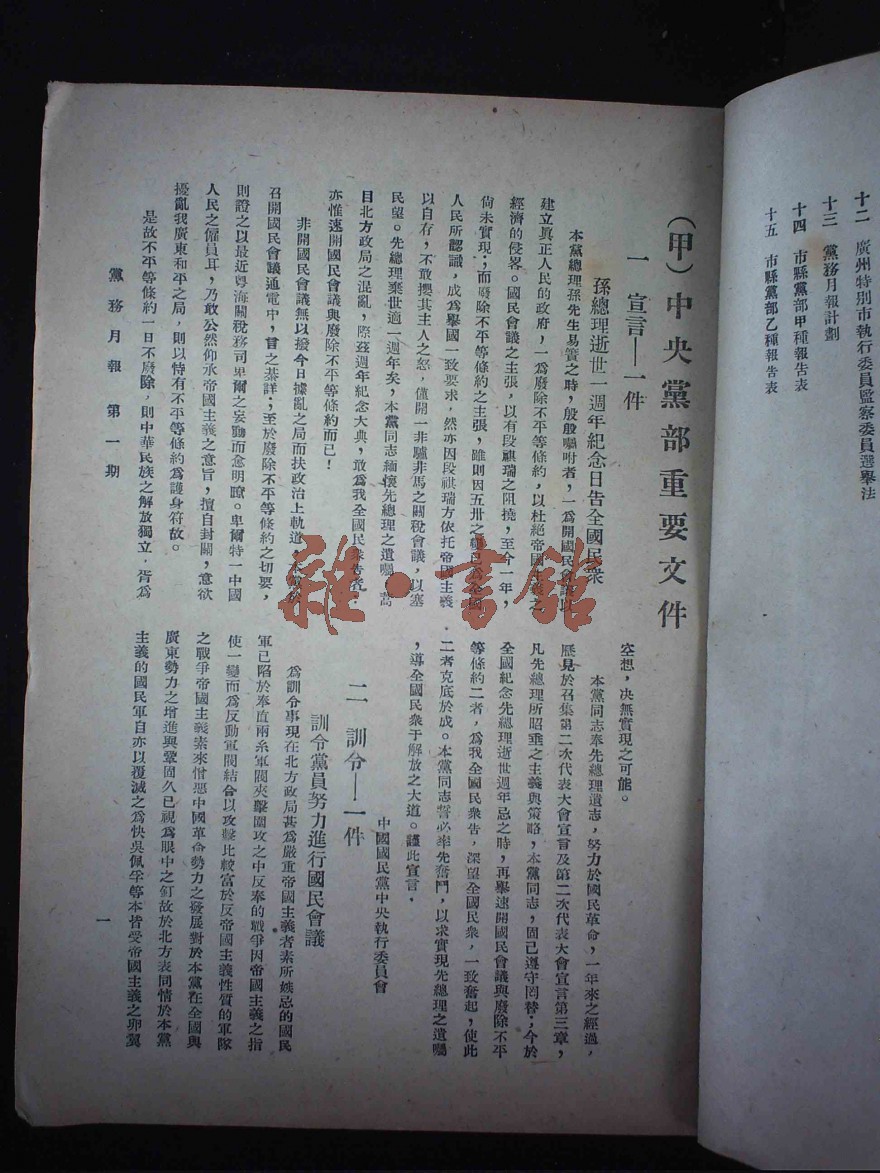 十二 廣州特別市執行委員監察委員選舉法
十三 黨務月報計劃
十四 市縣黨部甲種報告表
十五 市縣黨部乙種報告表
（甲）中央黨部重要文件
一 宣言—一件
孫總理逝世一週年紀念日告全國民衆
本黨總理孫先生易簀之時，殷殷囑咐者，一爲開國民會議以
建立眞正人民的政府，一爲廢除不平等條約，以杜絕帝國主義之
經濟的侵畧。國民會議之主張，以有段祺瑞之阻撓，至今一年，
尙未實現；而廢除不平等條約之主張，雖則因五卅之 已爲全國
人民所認識，成爲舉國一致要求，然亦因段祺瑞方依托帝國主義
以自存，不敢攖其主人之怒，僅開一非驢非馬之關稅會議，以塞
民望。先總理棄世適一週年矣，本黨同志緬懷先總理之遺囑，蒿
目北方政局之混亂，際茲週年紀念大典，敢爲我全國民衆告者，
亦惟速開國民會議與廢除不平等條約而已！
非開國民會議無以撥今日據亂之局而扶政治上軌道，
召開國民會議通電中，言之綦詳；至於廢除不平等條約之切要，
則證之以最近粤海關稅務司卑爾之妄動而愈明瞭。卑爾特一中國
人民之僱員耳，乃敢公然仰承帝國主義之意旨，擅自封關，意欲
擾亂我廣東和平之局，則以恃有不平等條約爲護身符故。
是故不平等條約一日不廢除，則中華民族之解放獨立，胥爲
空想，决無實現之可能。
本黨同志奉先總理遺志，努力於國民革命，一年來之經過，
歷見於召集第二次代表大會宣言及第二次代表大會宣言第三章，
凡先總理所昭垂之主義與策略，本黨同志，固已遵守罔替；今於
全國紀念先總理逝世週年忌之時，再舉速開國民會議與廢除不平
等條約二者，爲我全國民衆告，深望全國民衆，一致奮起，使此
二者克底於成。本黨同志誓必率先奮鬥，以求實現先總理之遺囑
，導全國民衆于解放之大道。謹此宣言。
中國國民黨中央執行委員會
二 訓令—一件
訓令黨員努力進行國民會議
爲訓令事現在北方政局甚爲嚴重帝國主義者素所嫉忌的國民
軍已陷於奉直兩系軍閥夾擊圍攻之中反奉的戰爭因帝國主義之指
使一變而爲反動軍閥結合以攻擊比較富於反帝國主義性質的軍隊
之戰爭帝國主義素來憎惡中國革命勢力之發展對於本黨在全國與
廣東勢力之增進與鞏固久已視爲眼中之釘故於北方表同情於本黨
主義的國民軍自亦以覆滅之爲快吳佩孚等本皆受帝國主義之卵翼
黨務月報 第一期
一
雜·書館